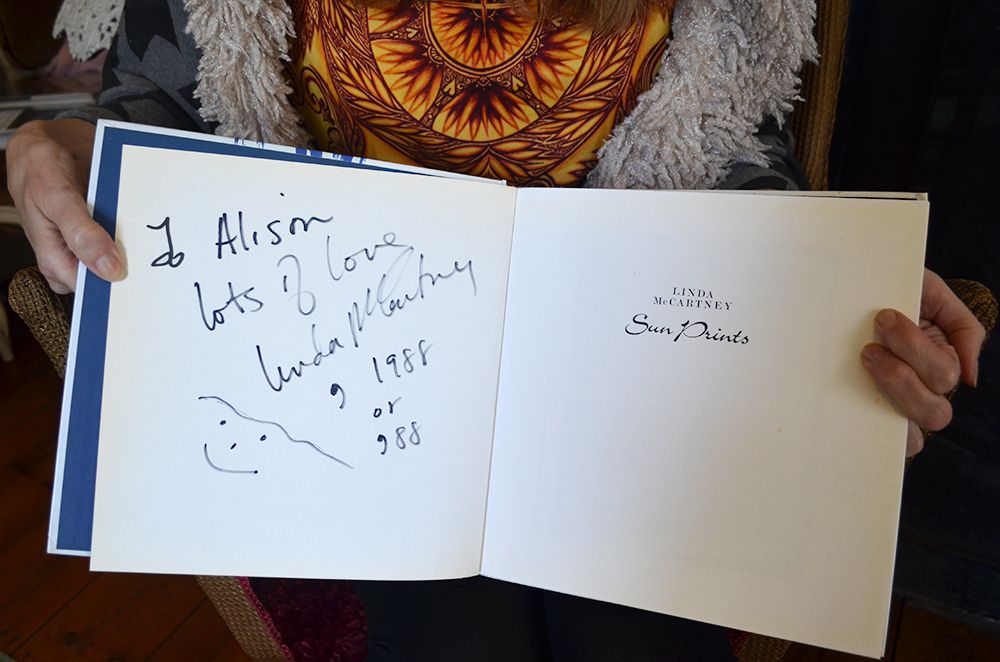 To Alison
lots of love
Linda McCartney
, 1988
or
, 88
LINDA
McCARTNEY
Sun Prints